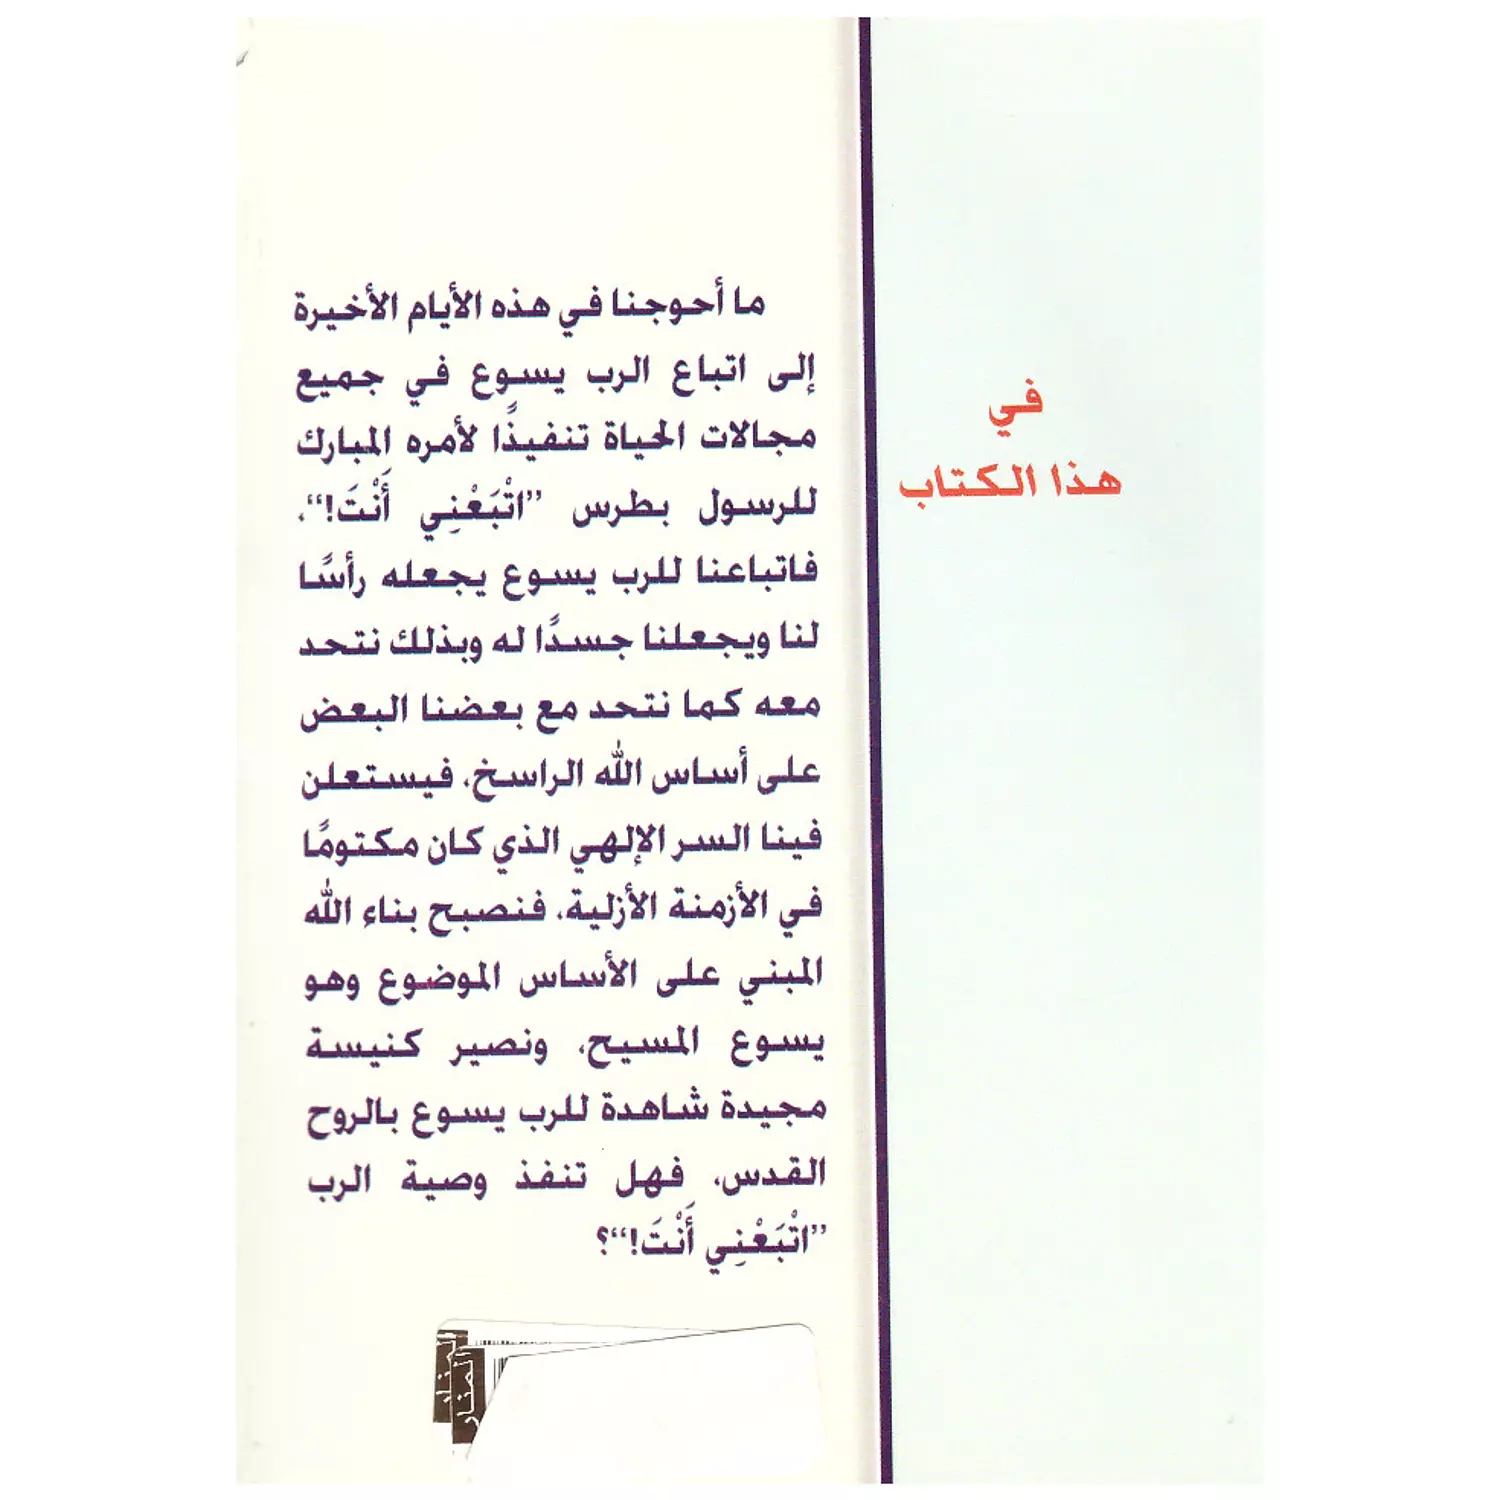 في
هذا الكتاب
ما أحوجنا في هذه الأيام الأخيرة
إلى اتباع الرب يسوع في جميع
مجالات الحياة تنفيذًا لأمره المبارك
للرسول بطرس ”اتْبَعْنِي أَنْتَ!“،
فاتباعنا للرب يسوع يجعله رأسًا
لنا ويجعلنا جسدًا له وبذلك نتحد
معه كما نتحد مع بعضنا البعض
على أساس الله الراسخ، فيستعلن
فينا السر الإلهي الذي كان مكتومًا
في الأزمنة الأزلية، فنصبح بناء الله
المبني على الأساس الموضوع وهو
يسوع المسيح، ونصير كنيسة
مجيدة شاهدة للرب يسوع بالروح
القدس، فهل تنفذ وصية الرب
”اتْبَعْنِي أَنْتَ!“؟
المنار
المنار